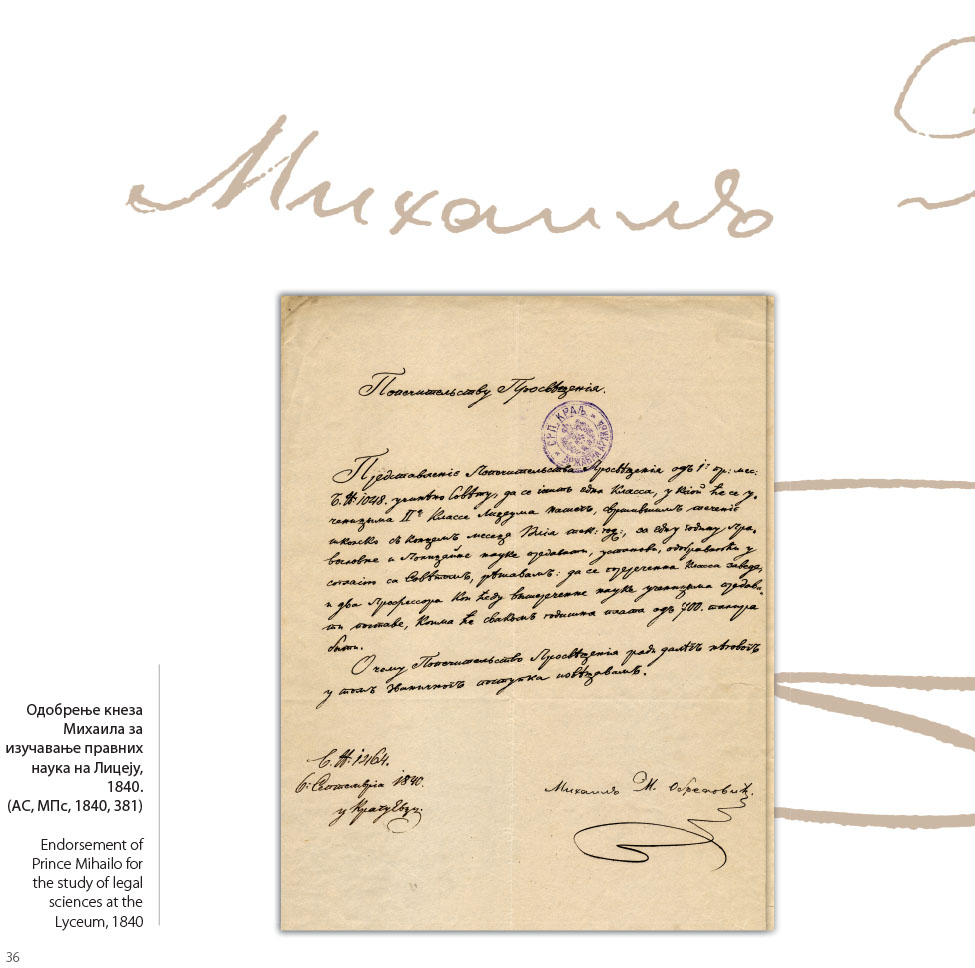 Михаилъ
Попечительству Просвѣщенія.
СРП. КРАЉ.
Представленіе Попечительства Просвѣщенія одъ 1. пр: мес:
Б. № 1048. учинѣно Совѣту, да се іоштъ една Класса, у коіой ће се у,
ченицыма IIе Классе Лицеума нашегъ, свршившимъ теченіе
школско съ концемъ месеца Юлія тек: год:, за едну годину Пра,
вословне и науке предавати, установи, одобраваюћи у
согласію са Совѣтомъ, рѣшавамъ: да се опреченна Класса заведе,
и два Профессора кои ћеду вышеречене наукъ ученицыма предава,
ти поставе, коима ће свакомъ годишня плата одъ 700. талира
быти.
О чему Попечительство Просвѣщенія ради далѣгъ нѣговогъ
у томъ званичногъ поступка извѣщавамъ.
Б. № 1264.
6. Септемвріа 1840.
у Крагуевцу.
Михаилъ М. Обреновић.
Одобрење кнеза
Михаила за
изучавање правних
наука на Лицеју,
1840.
(АС, МПс, 1840, 381)
Endorsement of
Prince Mihailo for
the study of legal
sciences at the
Lyceum, 1840
36